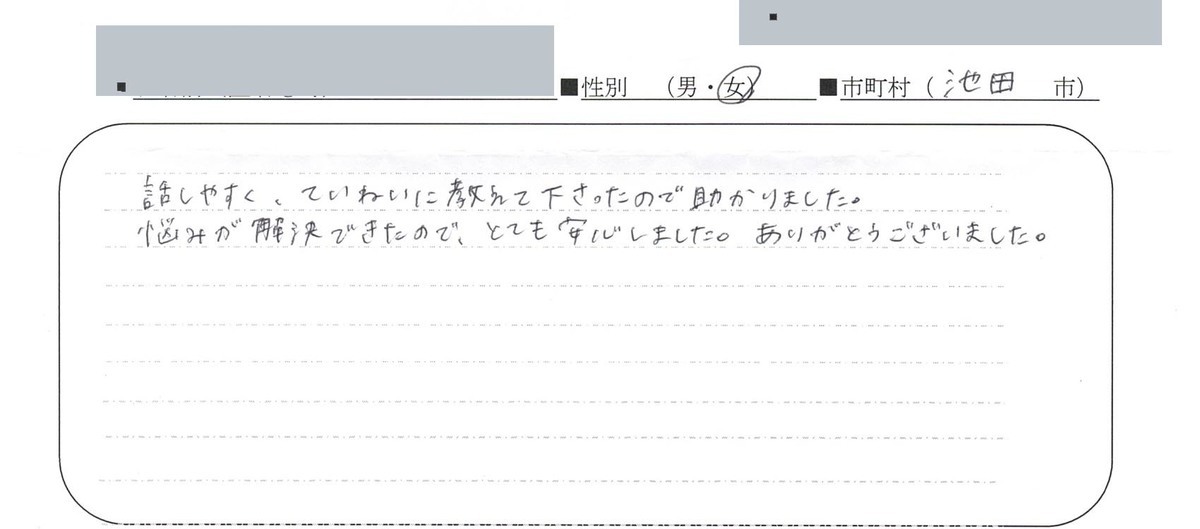 ■性別 (男・女) ■市町村(池田 市)
話しやすく、ていねいに教えて下さったので助かりました。
悩みが解決できたので、とても安心しました。ありがとうございました。